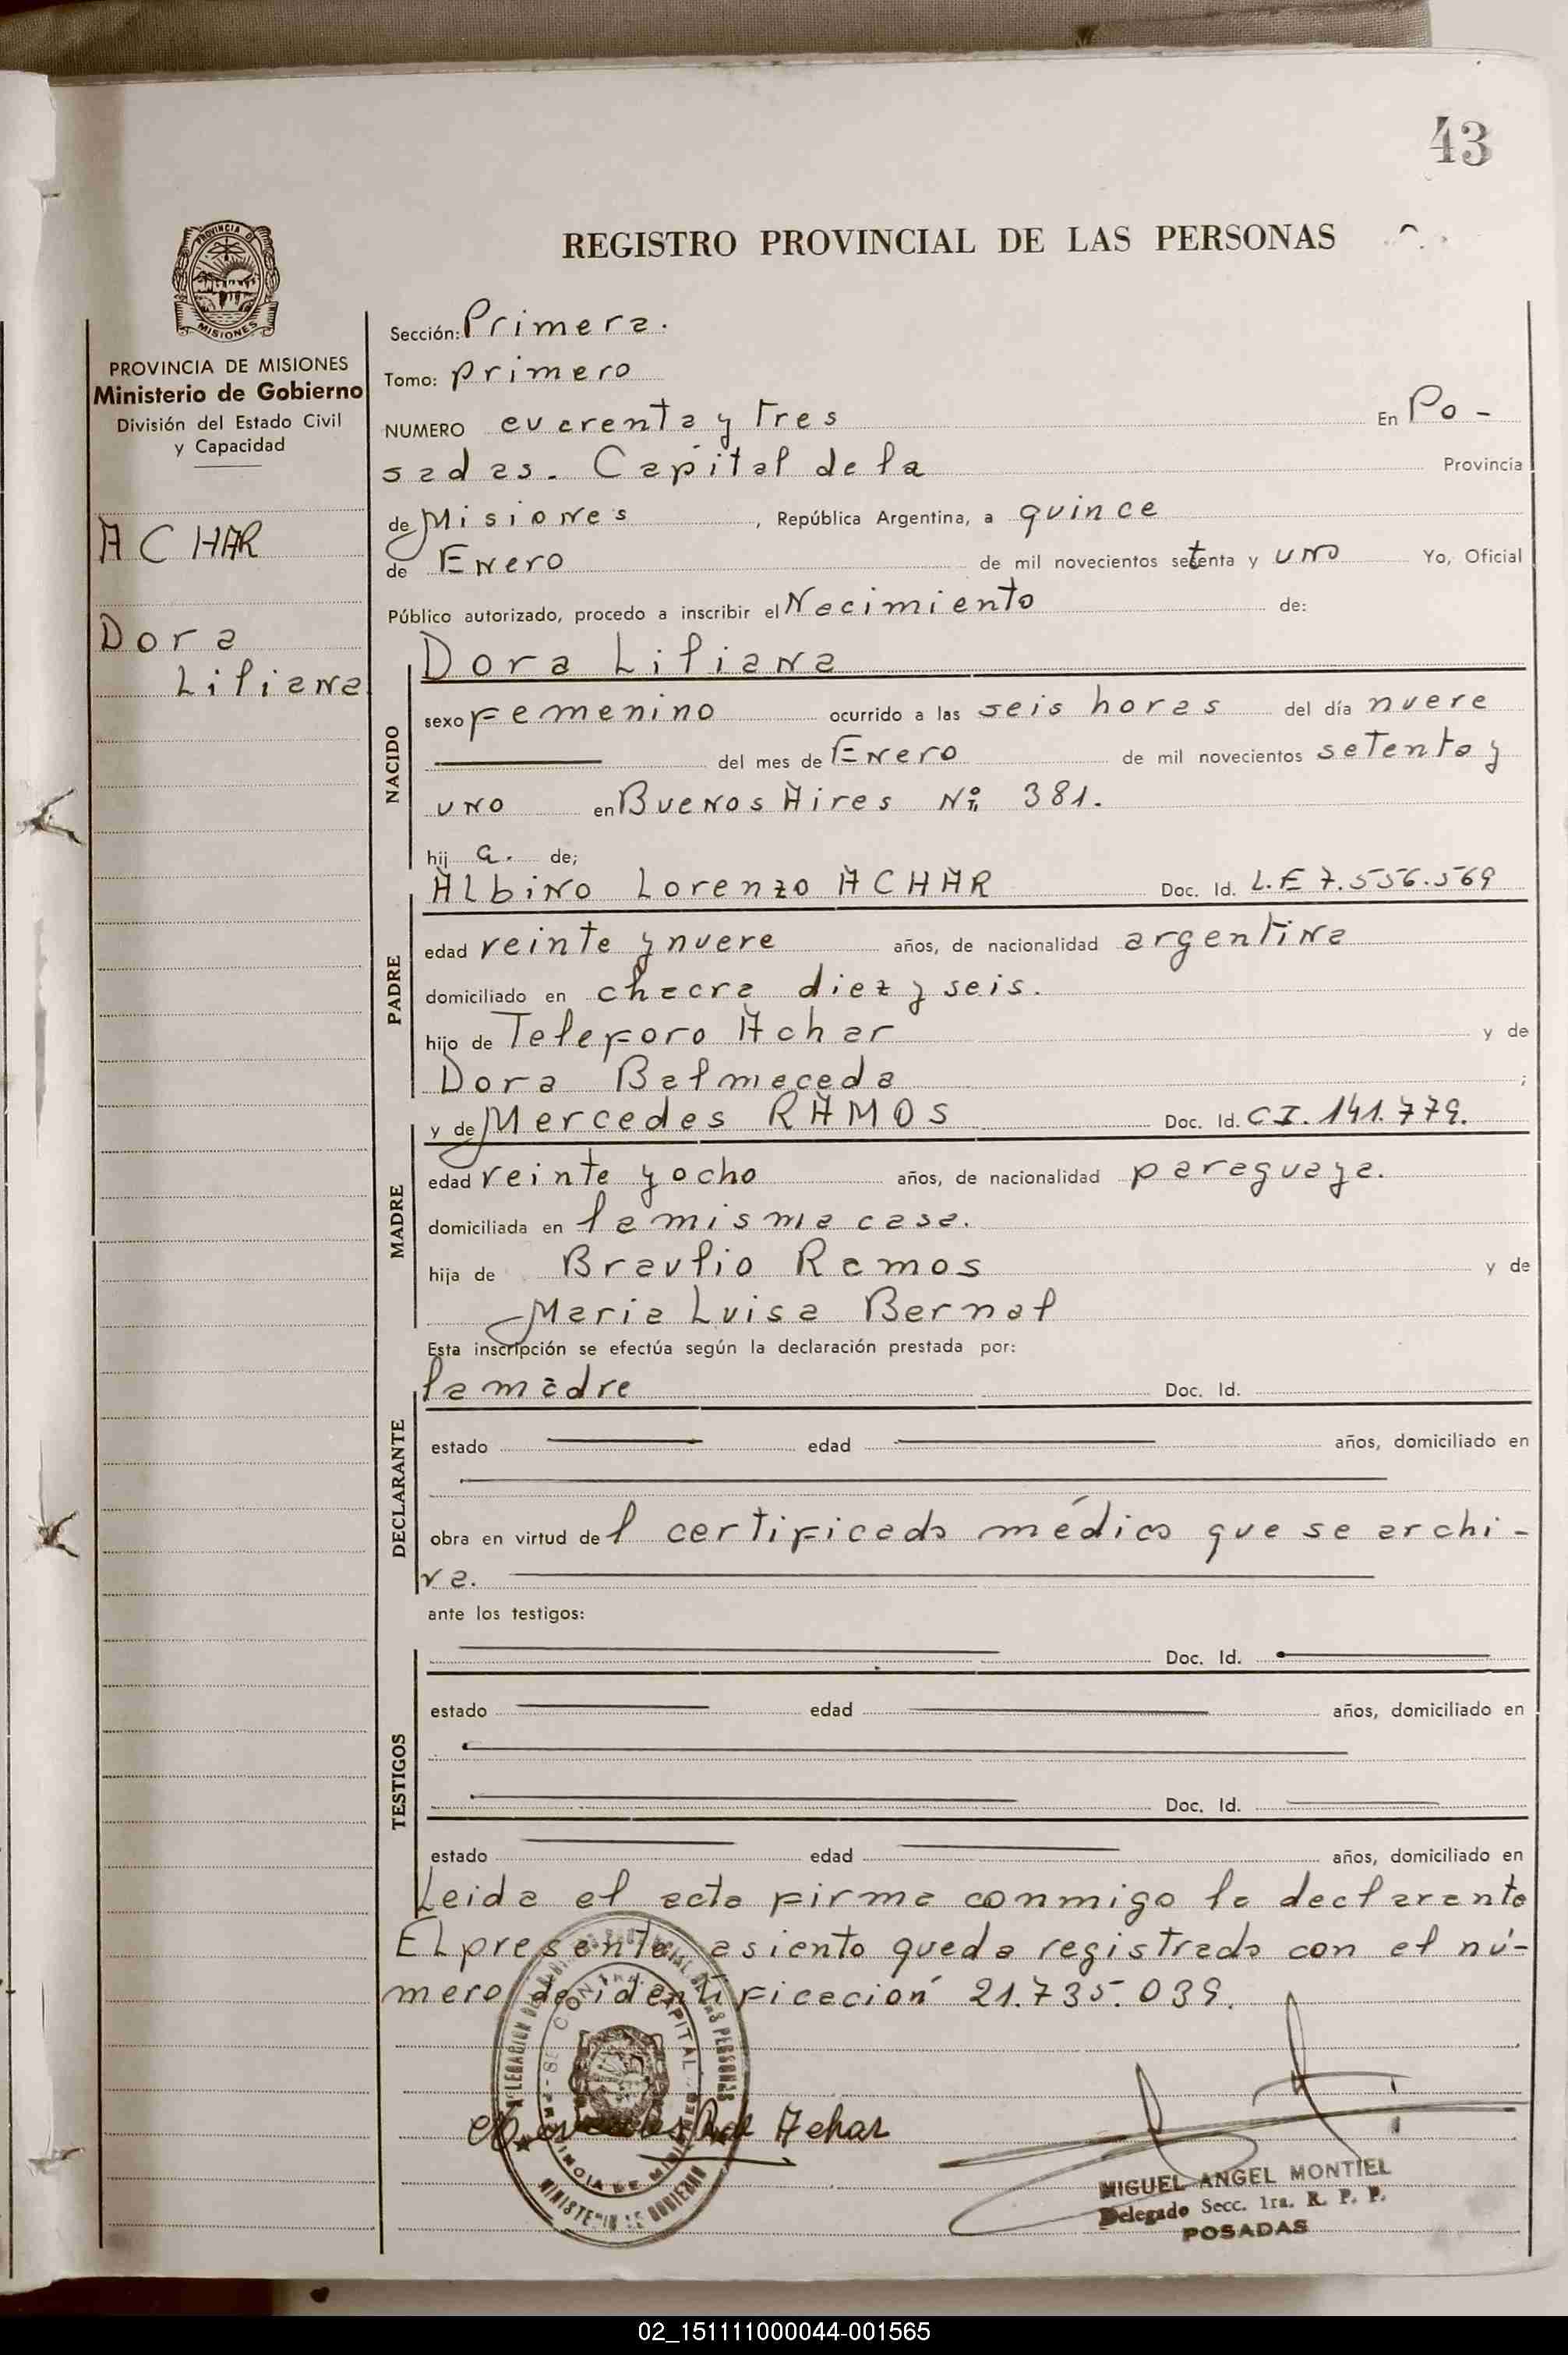 43
REGISTRO PROVINCIAL DE LAS PERSONAS
PROVINCIA DE MISIONES
Ministerio de Gobierno
División del Estado Civil
y Capacidad
ACHAR
Dora
Liliana
Sección: Primera.
Tomo: primero
NUMERO cuarenta y tres En Po-
sadas. Capital de la Provincia
de Misiones, República Argentina, a quince
de Enero de mil novecientos setenta y uno Yo, Oficial
Público autorizado, procedo a inscribir el Nacimiento de:
NACIDO
Dora Liliana
sexo Femenino ocurrido a las seis horas del día nueve
del mes de Enero de mil novecientos setenta y
uno en Buenos Aires Nº 381.
hij a. de;
PADRE
Albino Lorenzo ACHAR Doc. Id. L.E 7.556.569
edad veinte y nueve años, de nacionalidad argentina
domiciliado en chacra diez y seis.
hijo de Teleforo Achar y de
Dora Balmaceda ;
MADRE
y de Mercedes RAMOS Doc. Id. CI. 141.779.
edad veinte y ocho años, de nacionalidad paraguaya.
domiciliada en la misma casa.
hija de Braulio Ramos y de
Maria Luisa Bernal
Esta inscripción se efectúa según la declaración prestada por:
DECLARANTE
la madre Doc. Id.
estado edad años, domiciliado en
obra en virtud del certificado médico que se archi-
va.
ante los testigos:
TESTIGOS
Doc. Id.
estado edad años, domiciliado en
Doc. Id.
estado edad años, domiciliado en
Leida el acta firma conmigo la declarante
El presente asiento queda registrado con el nú-
mero de identificación 21.735.039.
Achar
MIGUEL ANGEL MONTIEL
Delegado Secc. 1ra. R. P. P.
POSADAS
02_151111000044-001565